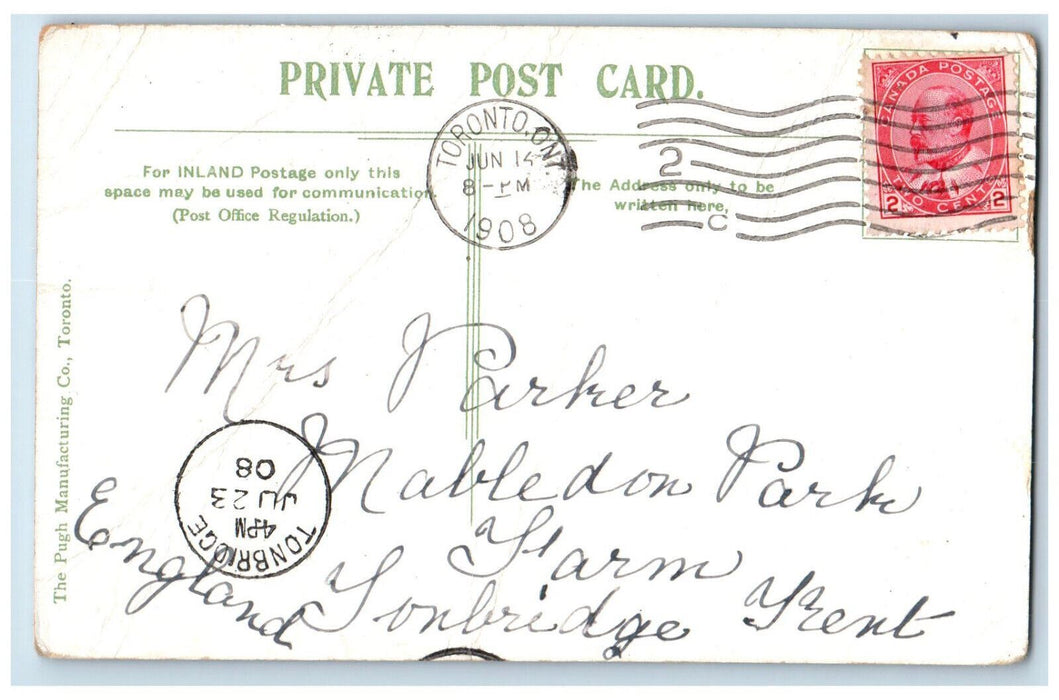 PRIVATE POST CARD.
For INLAND Postage only this
space may be used for communication
(Post Office Regulation.)
The Address only to be
written here.
TORONTO, ONT.
JUN 14
8-PM
1908
2
C
CANADA POSTAGE
2 TWO CENTS 2
The Pugh Manufacturing Co., Toronto.
Mrs Parker
Mabledon Park
Farm
Tonbridge Kent
England
TONBRIDGE
4PM
JU 23
08